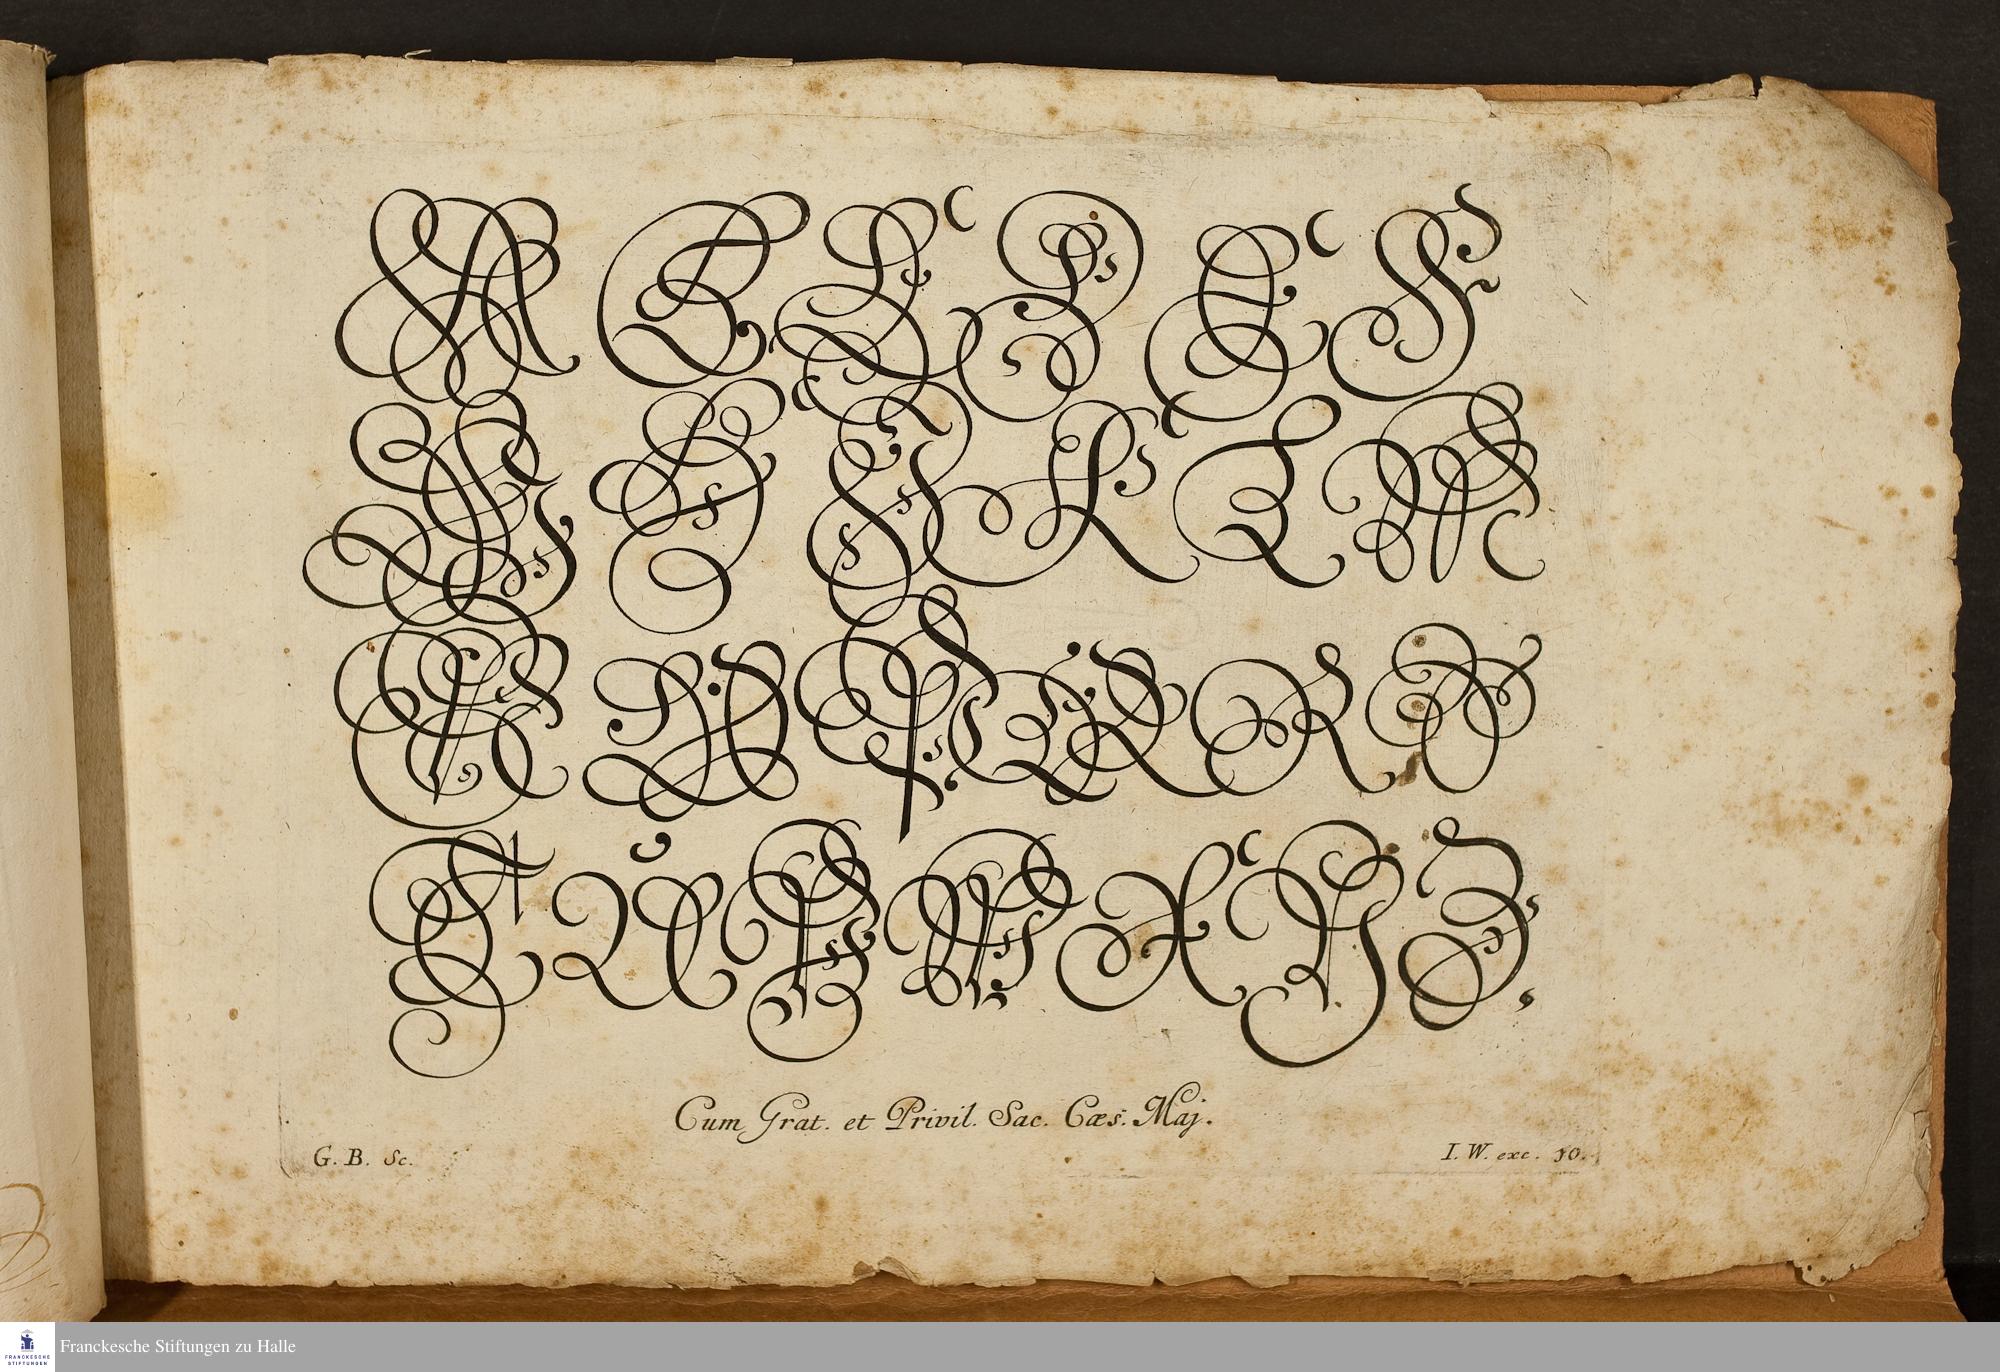 A B C D E F
G H I K L M
N O P Q R S
T U V W X Y Z
Cum Grat. et Privil. Sac. Cæs. Maj.
G. B. Sc.
I. W. exc. 10.
Franckesche Stiftungen zu Halle
FRANCKESCHE
STIFTUNGEN